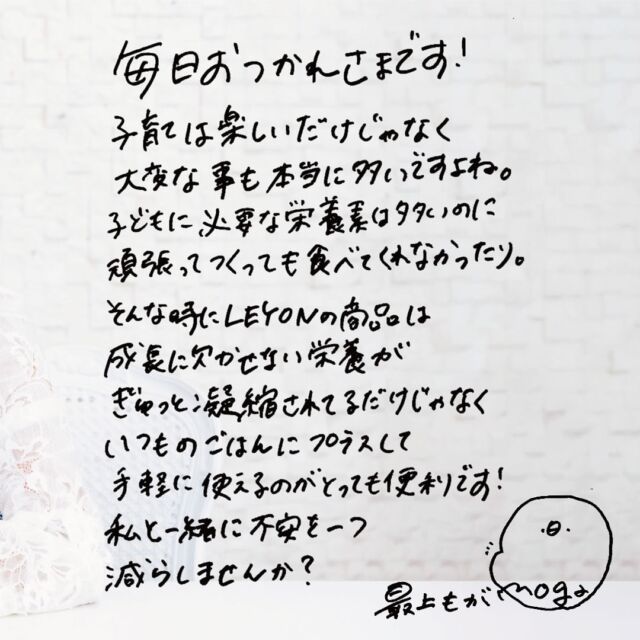 毎日おつかれさまです!
子育ては楽しいだけじゃなく
大変な事も本当に多いですよね。
子どもに必要な栄養素は多いのに
頑張ってつくっても食べてくれなかったり。
そんな時にLEYONの商品は
成長に欠かせない栄養が
ぎゅっと凝縮されてるだけじゃなく
いつものごはんにプラスして
手軽に使えるのがとっても便利です!
私と一緒に不安を一つ
減らしませんか?
最上もが moga